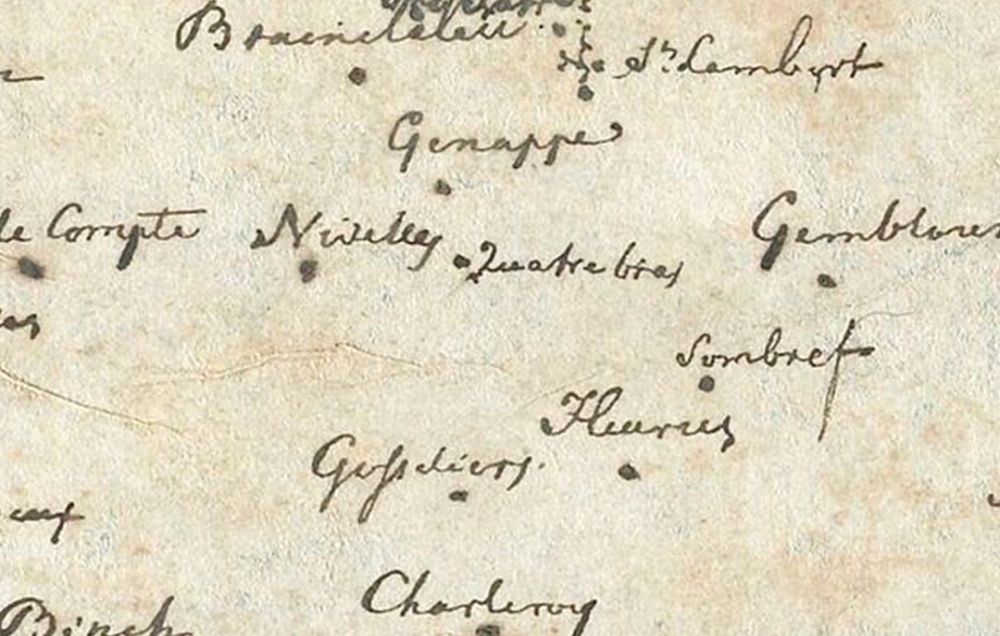 Brainelaleu
St. Lambert
Genappe
le Compte
Nivelles
Quatre bras
Gemblours
Sombref
Fleurus
Gosseliers.
Charleroy
Binch